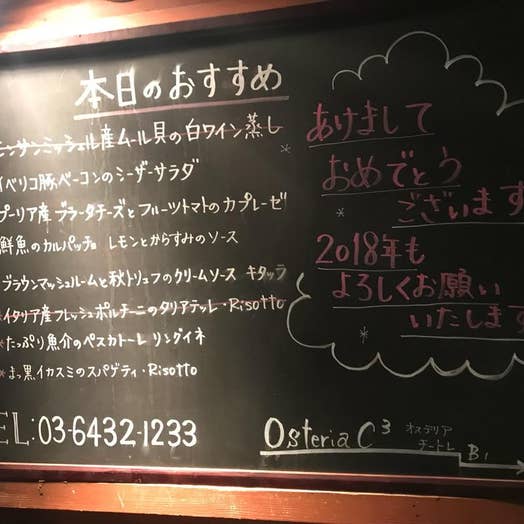 本日のおすすめ
モンサンミッシェル産ムール貝の白ワイン蒸し
イベリコ豚ベーコンのシーザーサラダ
プーリア産ブラータチーズとフルーツトマトのカプレーゼ
鮮魚のカルパッチョ レモンとからすみのソース
ブラウンマッシュルームと秋トリュフのクリームソース キタッラ
*イタリア産フレッシュポルチーニのタリアテッレ・Risotto
*たっぷり魚介のペスカトーレ リングイネ
*まっ黒イカスミのスパゲティ・Risotto
TEL:03-6432-1233
あけまして
おめでとう
ございます
2018年も
よろしくお願い
いたします
Osteria C³ オステリア
チートレ B1